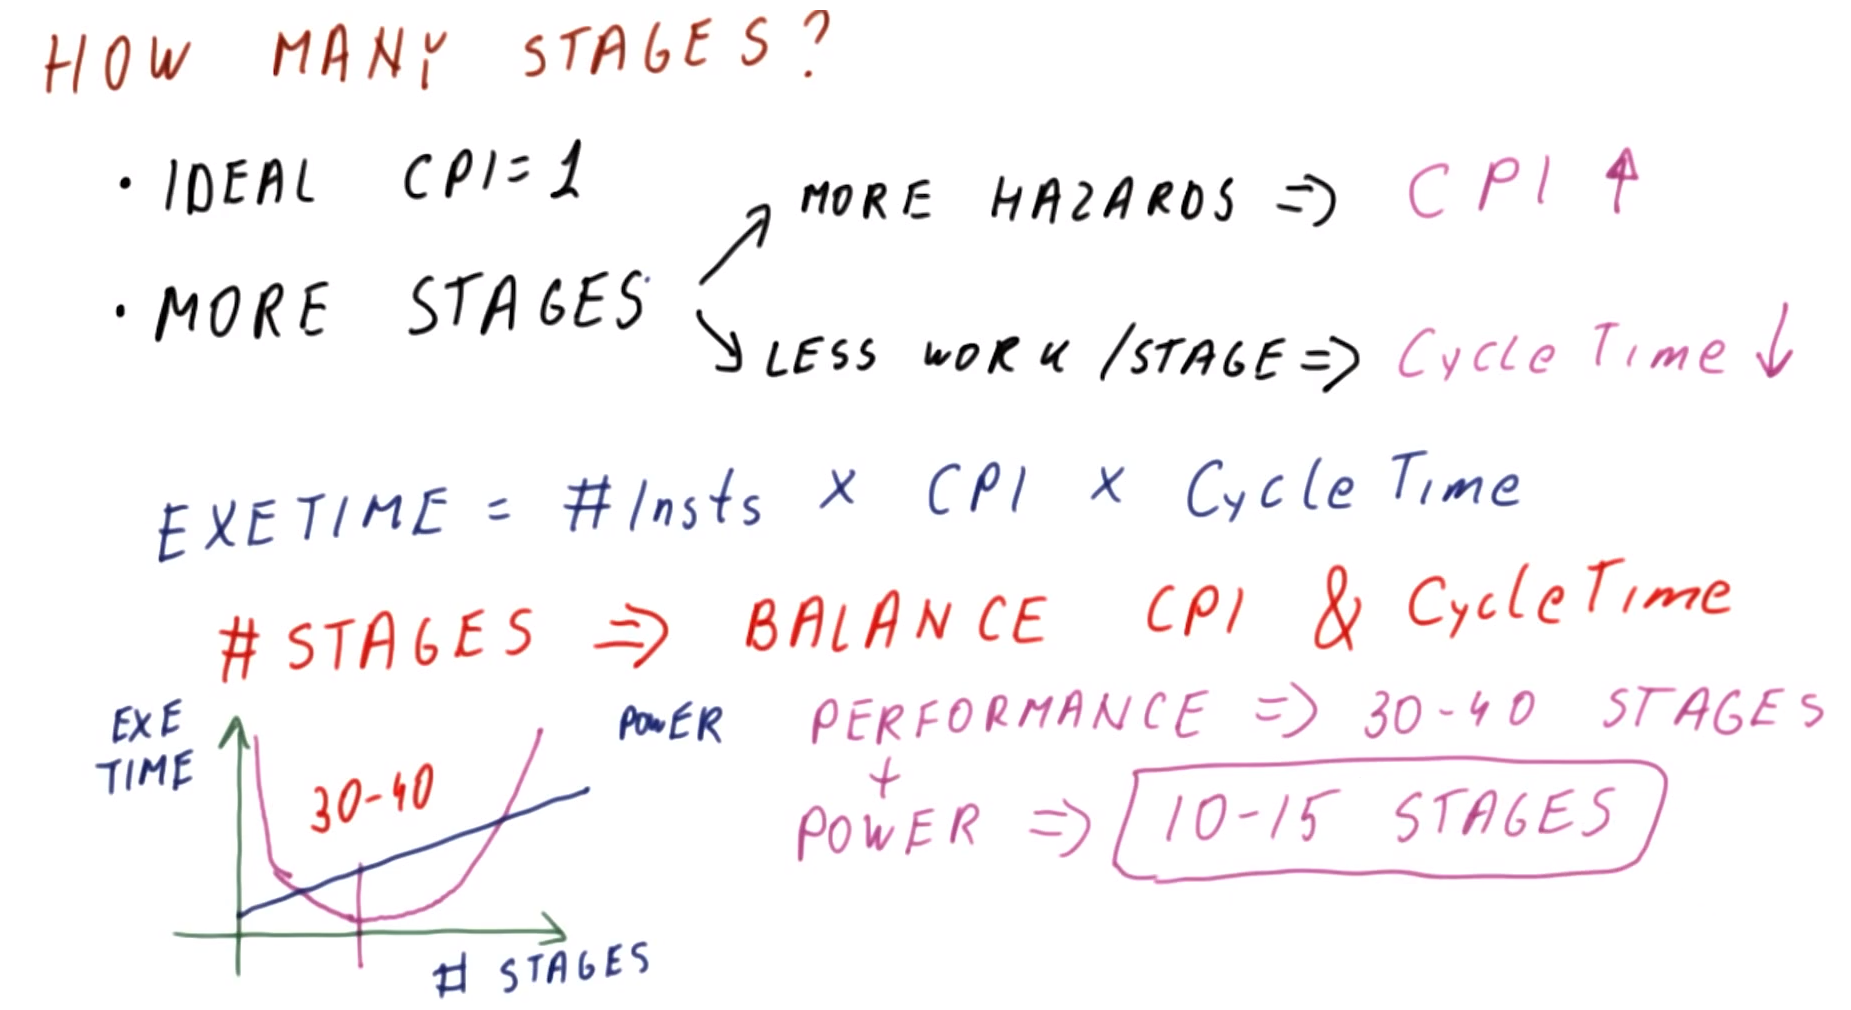 HOW MANY STAGES?
• IDEAL CPI=1
MORE HAZARDS => CPI ↑
• MORE STAGES
LESS WORK /STAGE => Cycle Time ↓
EXETIME = #Insts x CPI x Cycle Time
# STAGES => BALANCE CPI & Cycle Time
EXE TIME
POWER
30-40
# STAGES
PERFORMANCE => 30-40 STAGES
+
POWER => 10-15 STAGES